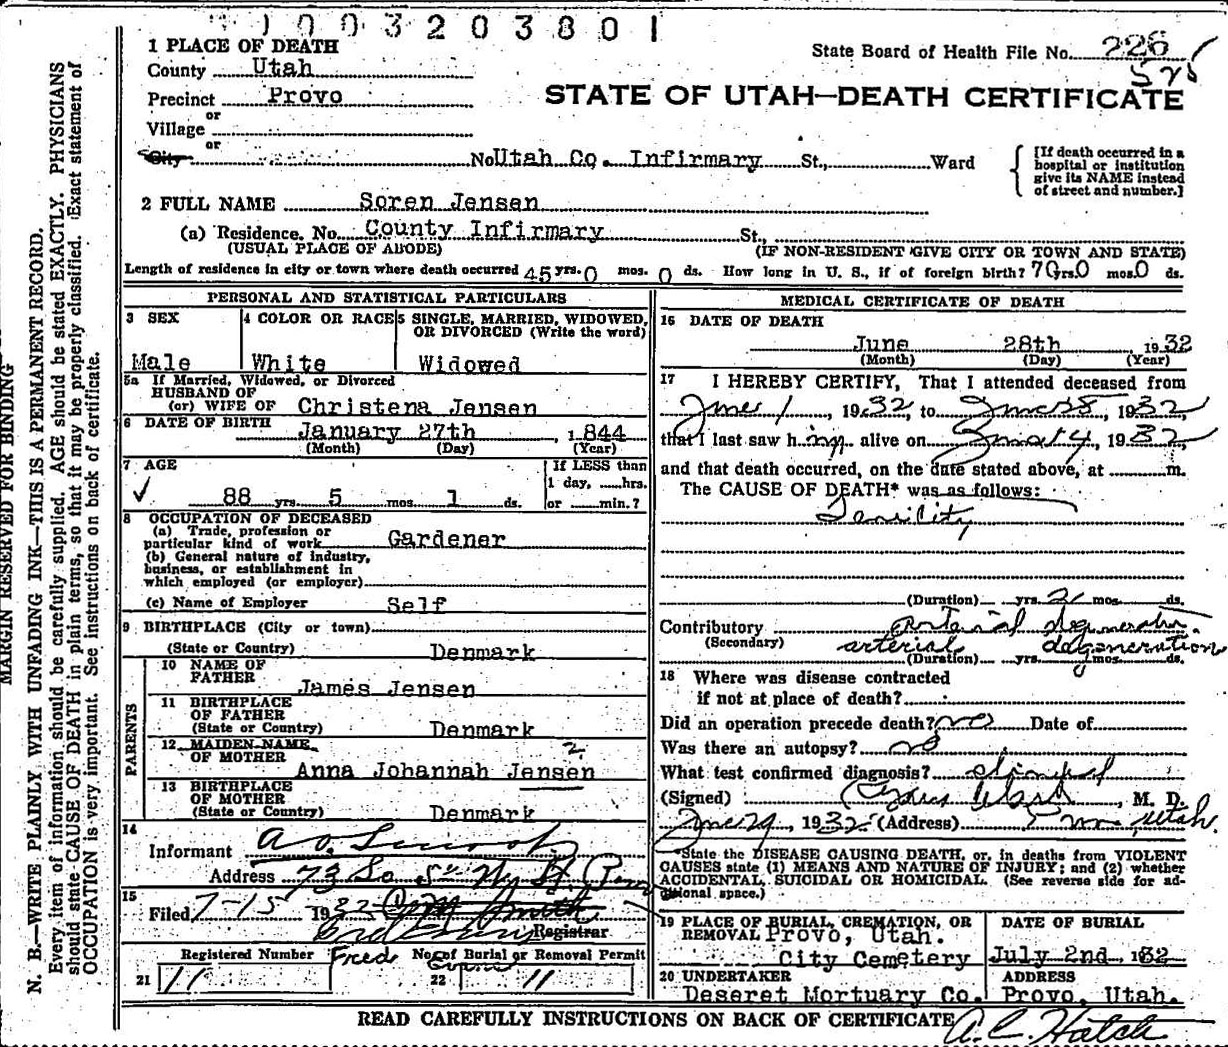 1003203801
1 PLACE OF DEATH
State Board of Health File No. 226
County Utah
525
Precinct Provo
STATE OF UTAH—DEATH CERTIFICATE
or
Village
or
City No Utah Co. Infirmary St., Ward
[If death occurred in a hospital or institution give its NAME instead of street and number.]
2 FULL NAME Soren Jensen
(a) Residence, No. County Infirmary St.,
(USUAL PLACE OF ABODE) (IF NON-RESIDENT GIVE CITY OR TOWN AND STATE)
Length of residence in city or town where death occurred 45 yrs. 0 mos. 0 ds. How long in U. S., if of foreign birth? 70 yrs. 0 mos. 0 ds.
PERSONAL AND STATISTICAL PARTICULARS
3 SEX 4 COLOR OR RACE 5 SINGLE, MARRIED, WIDOWED, OR DIVORCED (Write the word)
Male White Widowed
5a If Married, Widowed, or Divorced
HUSBAND OF
(or) WIFE OF Christena Jensen
6 DATE OF BIRTH January 27th, 1844
(Month) (Day) (Year)
7 AGE If LESS than
1 day, hrs.
88 yrs. 5 mos. 1 ds. or min.?
8 OCCUPATION OF DECEASED
(a) Trade, profession or
particular kind of work Gardener
(b) General nature of industry,
business, or establishment in
which employed (or employer)
(c) Name of Employer Self
9 BIRTHPLACE (City or town)
(State or Country) Denmark
PARENTS
10 NAME OF
FATHER James Jensen
11 BIRTHPLACE
OF FATHER
(State or Country) Denmark
12 MAIDEN NAME 2
OF MOTHER Anna Johannah Jensen
13 BIRTHPLACE
OF MOTHER
(State or Country) Denmark
14
Informant A. O.
Address 73 So 5th W St
15
Filed 7-15 1932 Smith
Registrar
Registered Number Fred Evans No. of Burial or Removal Permit
21 11 22 11
MEDICAL CERTIFICATE OF DEATH
16 DATE OF DEATH
June 28th 1932
(Month) (Day) (Year)
17 I HEREBY CERTIFY, That I attended deceased from
June 1, 1932, to June 28, 1932,
that I last saw him alive on, 1932
and that death occurred, on the date stated above, at m.
The CAUSE OF DEATH* was as follows:
Senility
(Duration) yrs. 2 mos. ds.
Contributory Arterial degeneration
(Secondary) arterial degeneration
(Duration) yrs. mos. ds.
18 Where was disease contracted
if not at place of death?
Did an operation precede death? no Date of
Was there an autopsy? no
What test confirmed diagnosis? clinical
(Signed), M. D.
June 29, 1932 (Address) Utah.
*State the DISEASE CAUSING DEATH, or, in deaths from VIOLENT
CAUSES state (1) MEANS AND NATURE OF INJURY; and (2) whether
ACCIDENTAL, SUICIDAL OR HOMICIDAL. (See reverse side for ad-
ditional space.)
19 PLACE OF BURIAL, CREMATION, OR DATE OF BURIAL
REMOVAL Provo, Utah.
City Cemetery July 2nd, 1932
20 UNDERTAKER ADDRESS
Deseret Mortuary Co. Provo, Utah.
READ CAREFULLY INSTRUCTIONS ON BACK OF CERTIFICATE
A. C. Hatch
MARGIN RESERVED FOR BINDING
N. B.—WRITE PLAINLY WITH UNFADING INK—THIS IS A PERMANENT RECORD.
Every item of information should be carefully supplied. AGE should be stated EXACTLY. PHYSICIANS
should state CAUSE OF DEATH in plain terms, so that it may be properly classified. Exact statement of
OCCUPATION is very important. See instructions on back of certificate.